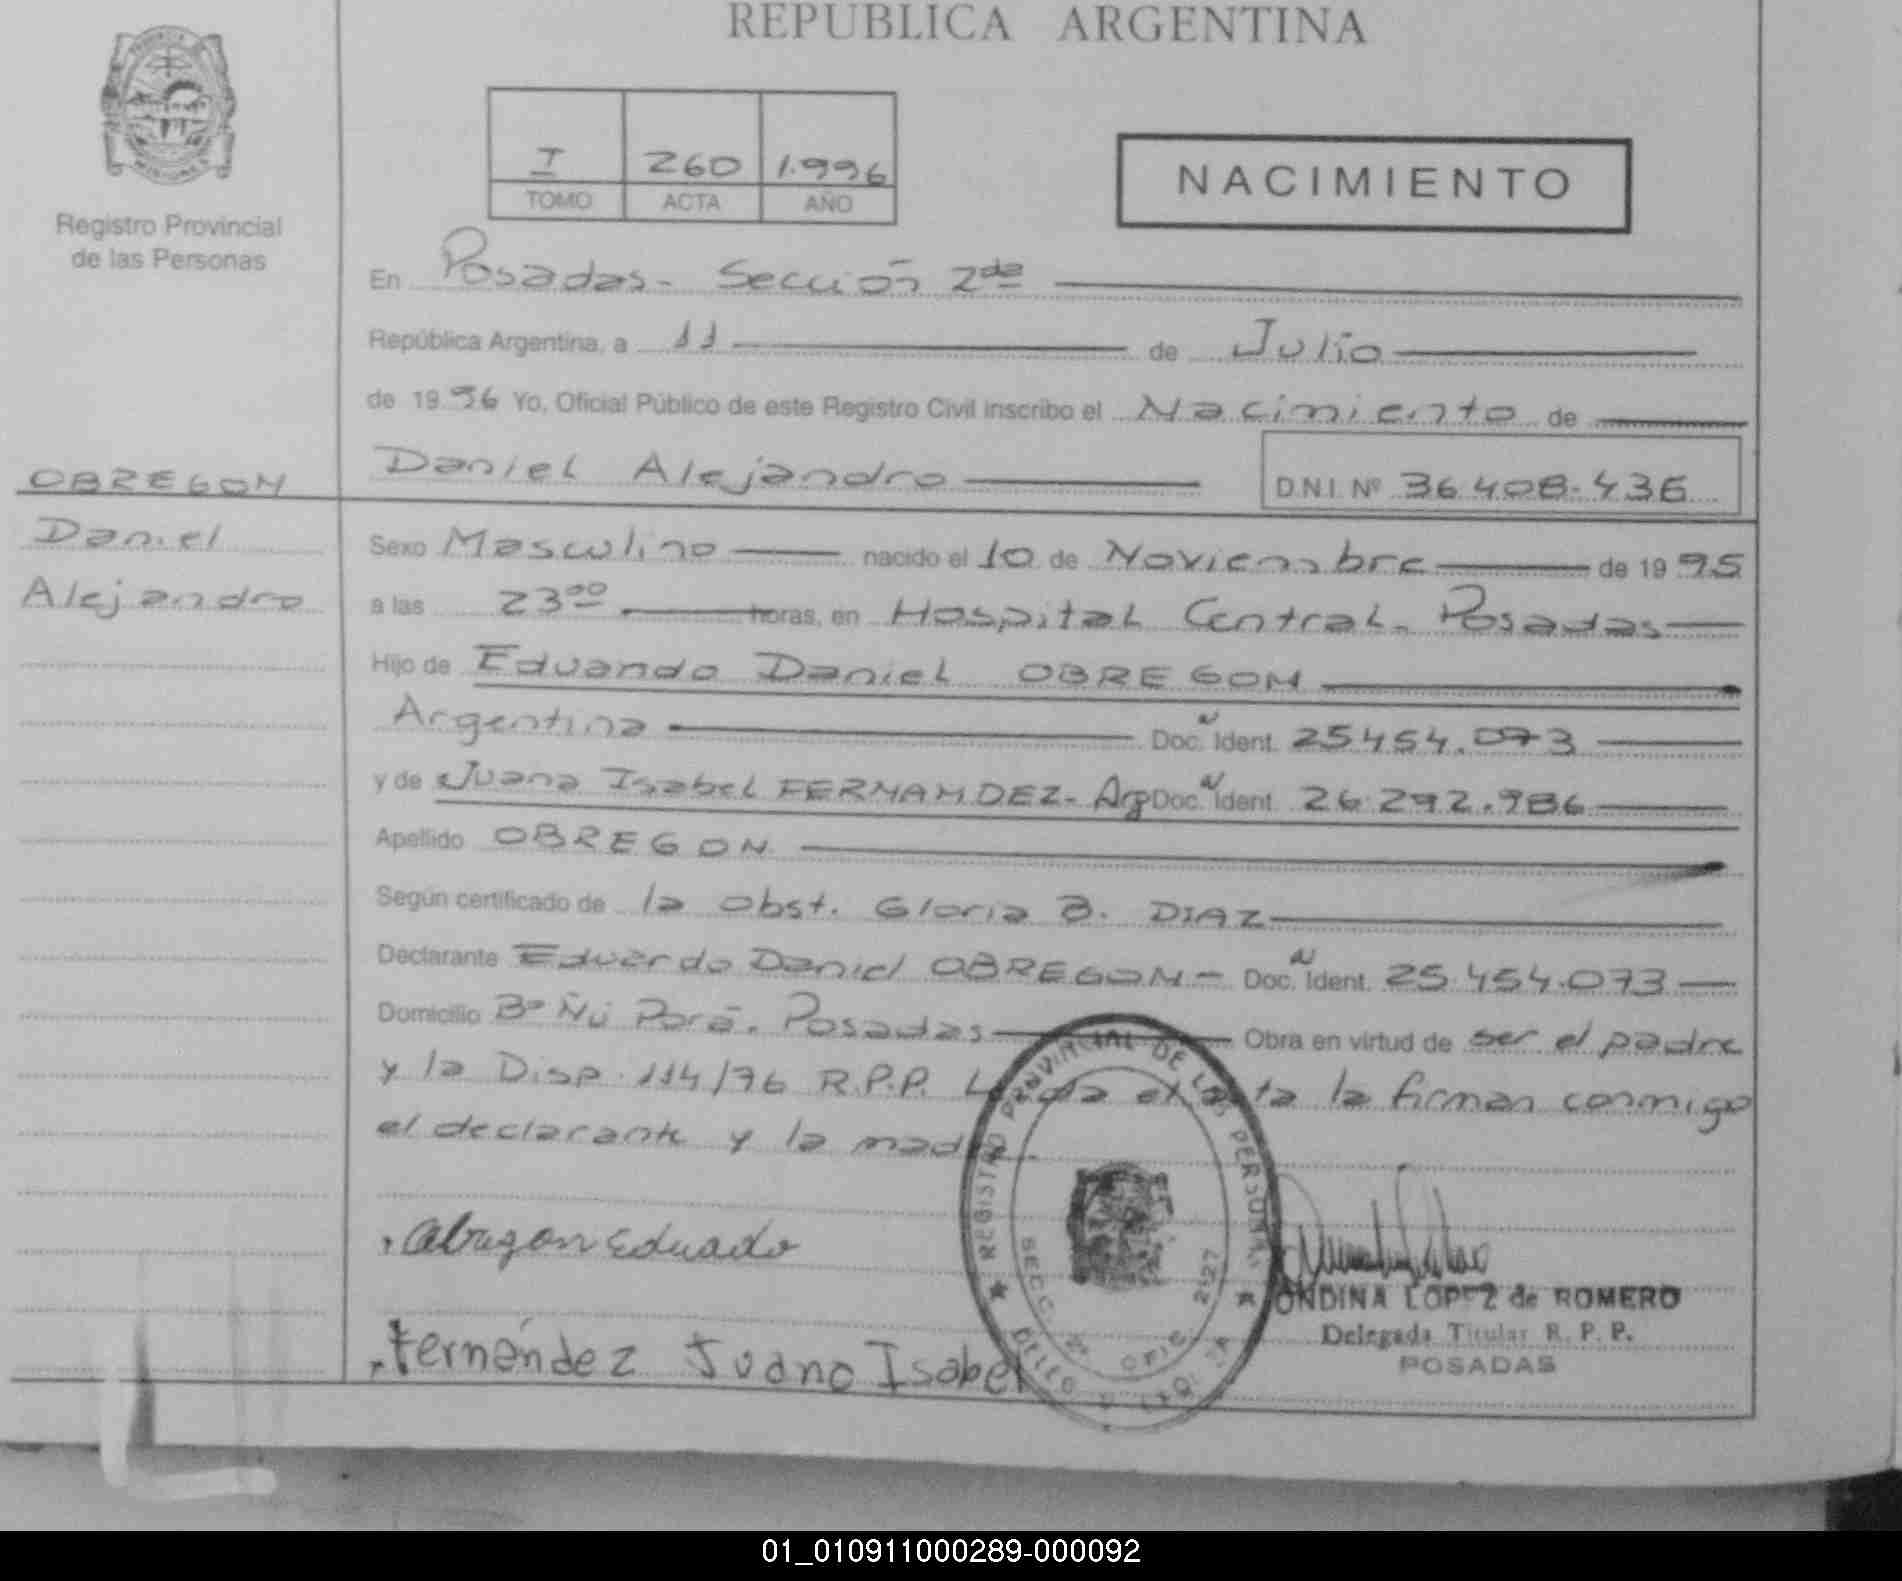 REPUBLICA ARGENTINA
PROVINCIA DE
MISIONES
Registro Provincial
de las Personas
I 260 1.996
TOMO ACTA AÑO
NACIMIENTO
En Posadas - Sección 2da
República Argentina, a 11 de Julio
de 1996 Yo, Oficial Público de este Registro Civil inscribo el Nacimiento de
Daniel Alejandro D.N.I. Nº 36.408.436
OBREGON
Daniel
Alejandro
Sexo Masculino nacido el 10 de Noviembre de 1995
a las 23 00 horas, en Hospital Central - Posadas
Hijo de Eduardo Daniel OBREGON
Argentina Doc. Ident. 25.454.073
y de Juana Isabel FERNANDEZ - Arg Doc. Ident. 26.292.986
Apellido OBREGON
Según certificado de la Obst. Gloria B. DIAZ
Declarante Eduardo Daniel OBREGON - Doc. Ident. 25.454.073
Domicilio Bº Ñú Porá. Posadas Obra en virtud de ser el padre
y la Disp. 114/76 R.P.P. Leída el acta la firman conmigo
el declarante y la madre.
Obregon Eduado
Fernández Juana Isabel
REGISTRO PROVINCIAL DE LAS PERSONAS
SECC. 2ª OFIC. 2127
ONDINA LOPEZ de ROMERO
Delegada Titular R. P. P.
POSADAS
01_010911000289-000092